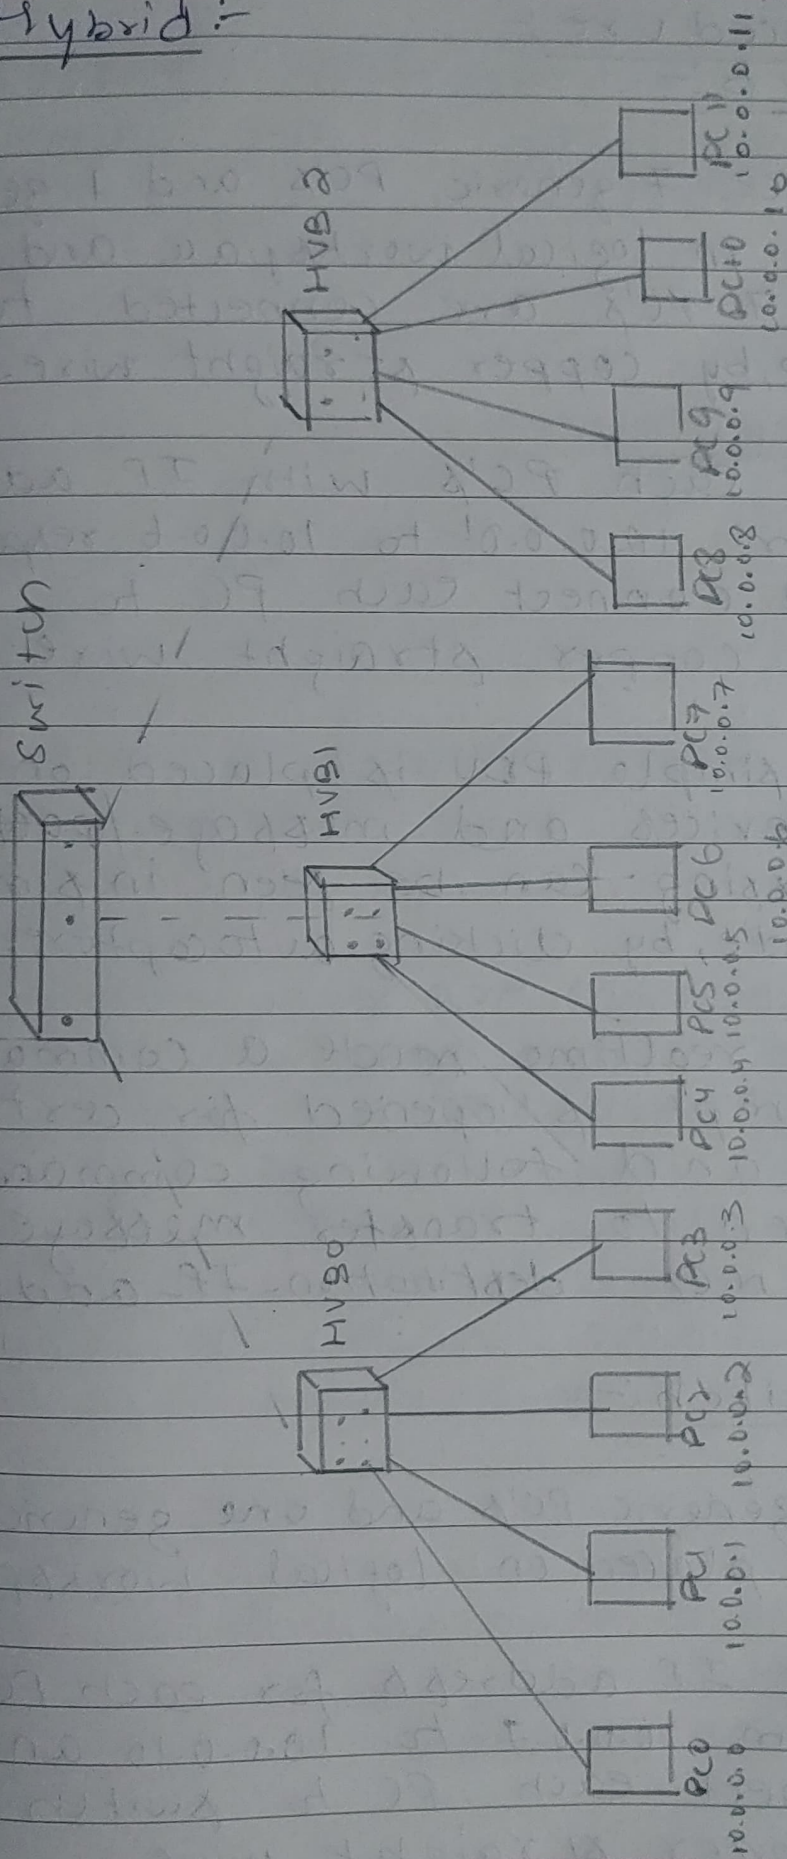 Hybrid :-
Switch
HUB0
HUB1
HUB2
PC0
10.0.0.0
PC1
10.0.0.1
PC2
10.0.0.2
PC3
10.0.0.3
PC4
10.0.0.4
PC5
10.0.0.5
PC6
10.0.0.6
PC7
10.0.0.7
PC8
10.0.0.8
PC9
10.0.0.9
PC10
10.0.0.10
PC11
10.0.0.11